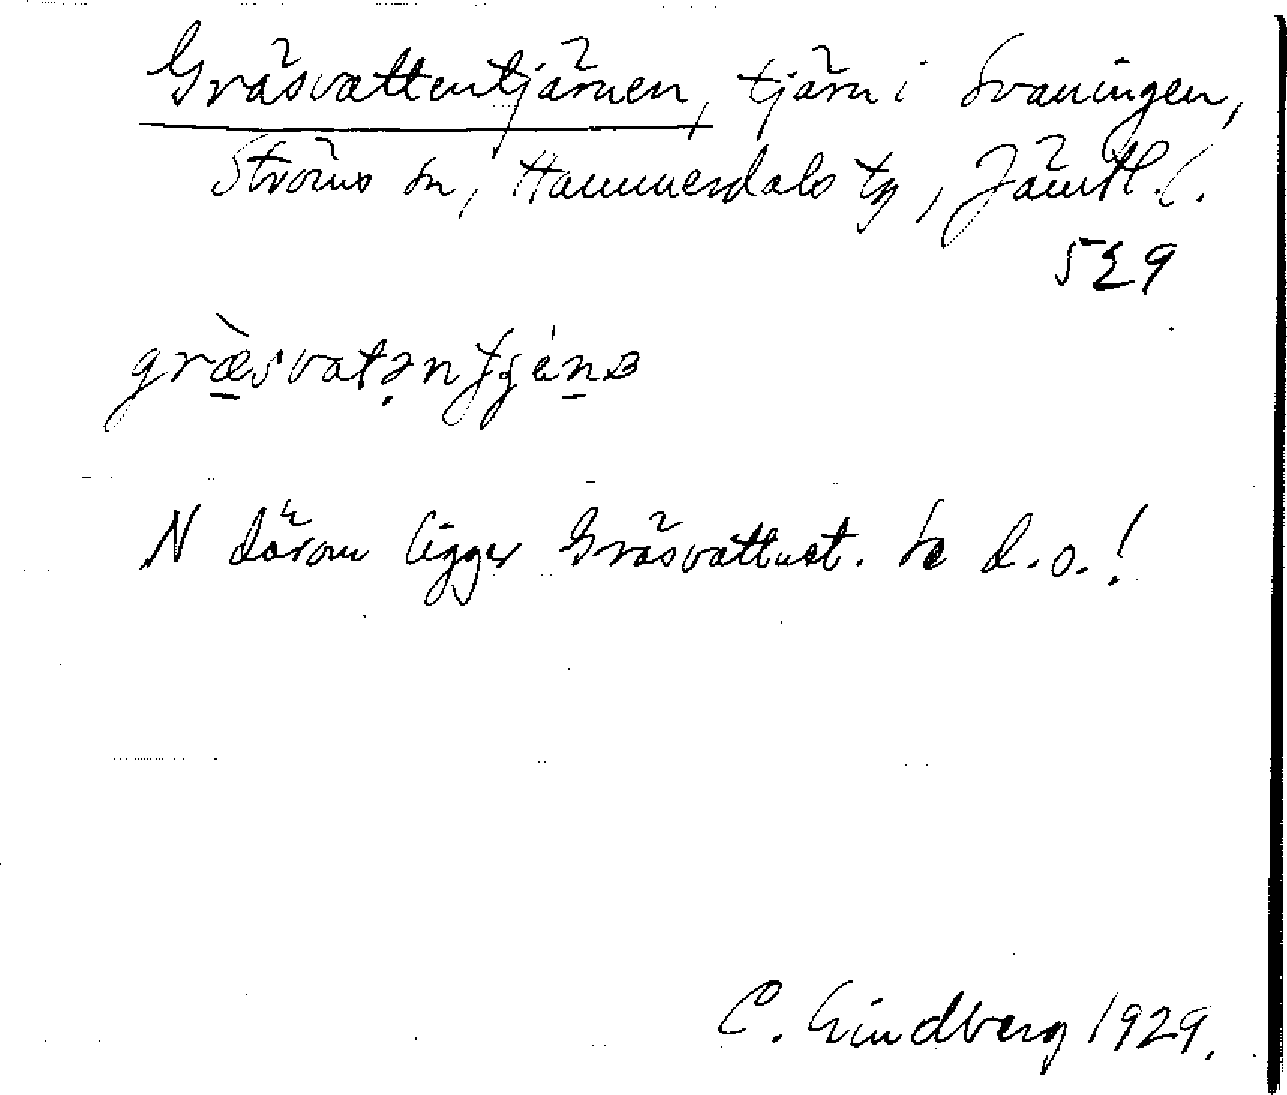 Gräsvattentjärnen, tjärn i Svaningen,
Ströms sn, Hammerdals tg, Jämtl. l.
5Σ9
græ̀svatəntjénɐ
N därom ligger Gräsvattnet. Se d. o.!
C. Lindberg 1929.